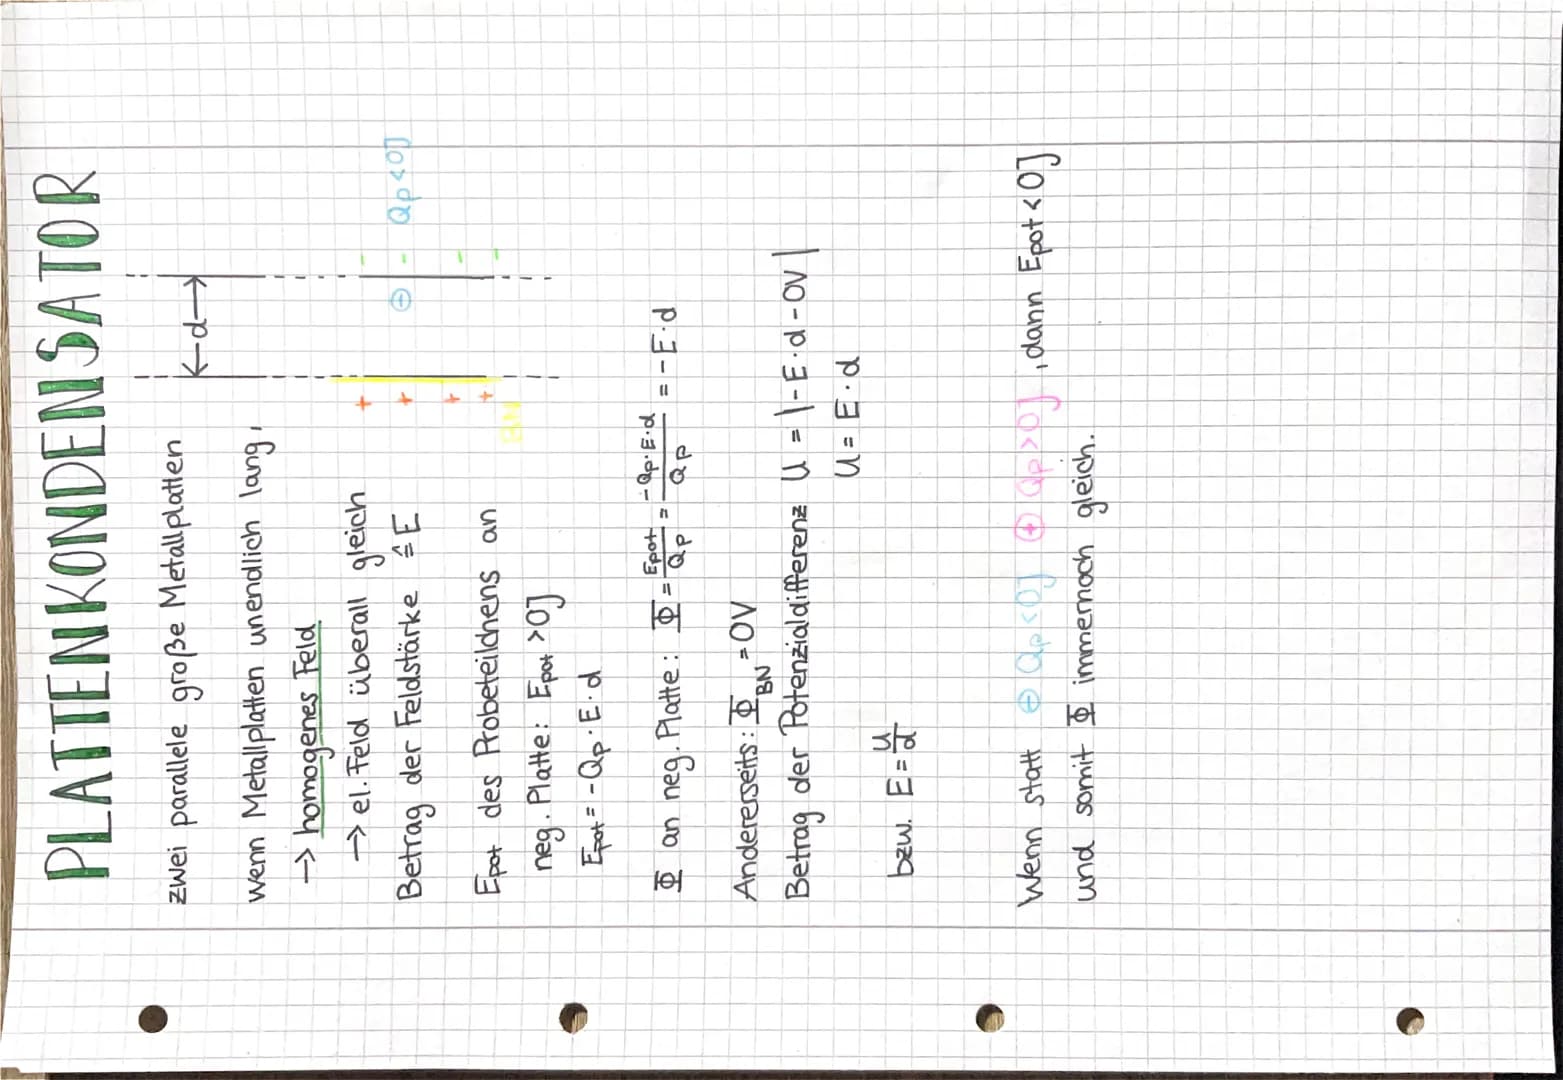 PLATTENKONDENSATOR
zwei parallele große Metallplatten
←d→
wenn Metallplatten unendlich lang,
→ homogenes Feld
→ el. Feld überall gleich
+ + + +
- - - -
⊖ Qp<0]
Betrag der Feldstärke ≙ E
BN
Epot des Probeteilchens an
neg. Platte: Epot >0]
Epot = -Qp · E · d
Φ an neg. Platte: Φ = Epot/Qp = -Qp·E·d/Qp = -E·d
Andererseits: Φ_BN = 0V
Betrag der Potenzialdifferenz U = |-E·d - 0V|
U = E·d
bzw. E = U/d
Wenn statt ⊖ Qp<0] ⊕ Qp>0] , dann Epot<0]
und somit Φ immernoch gleich.